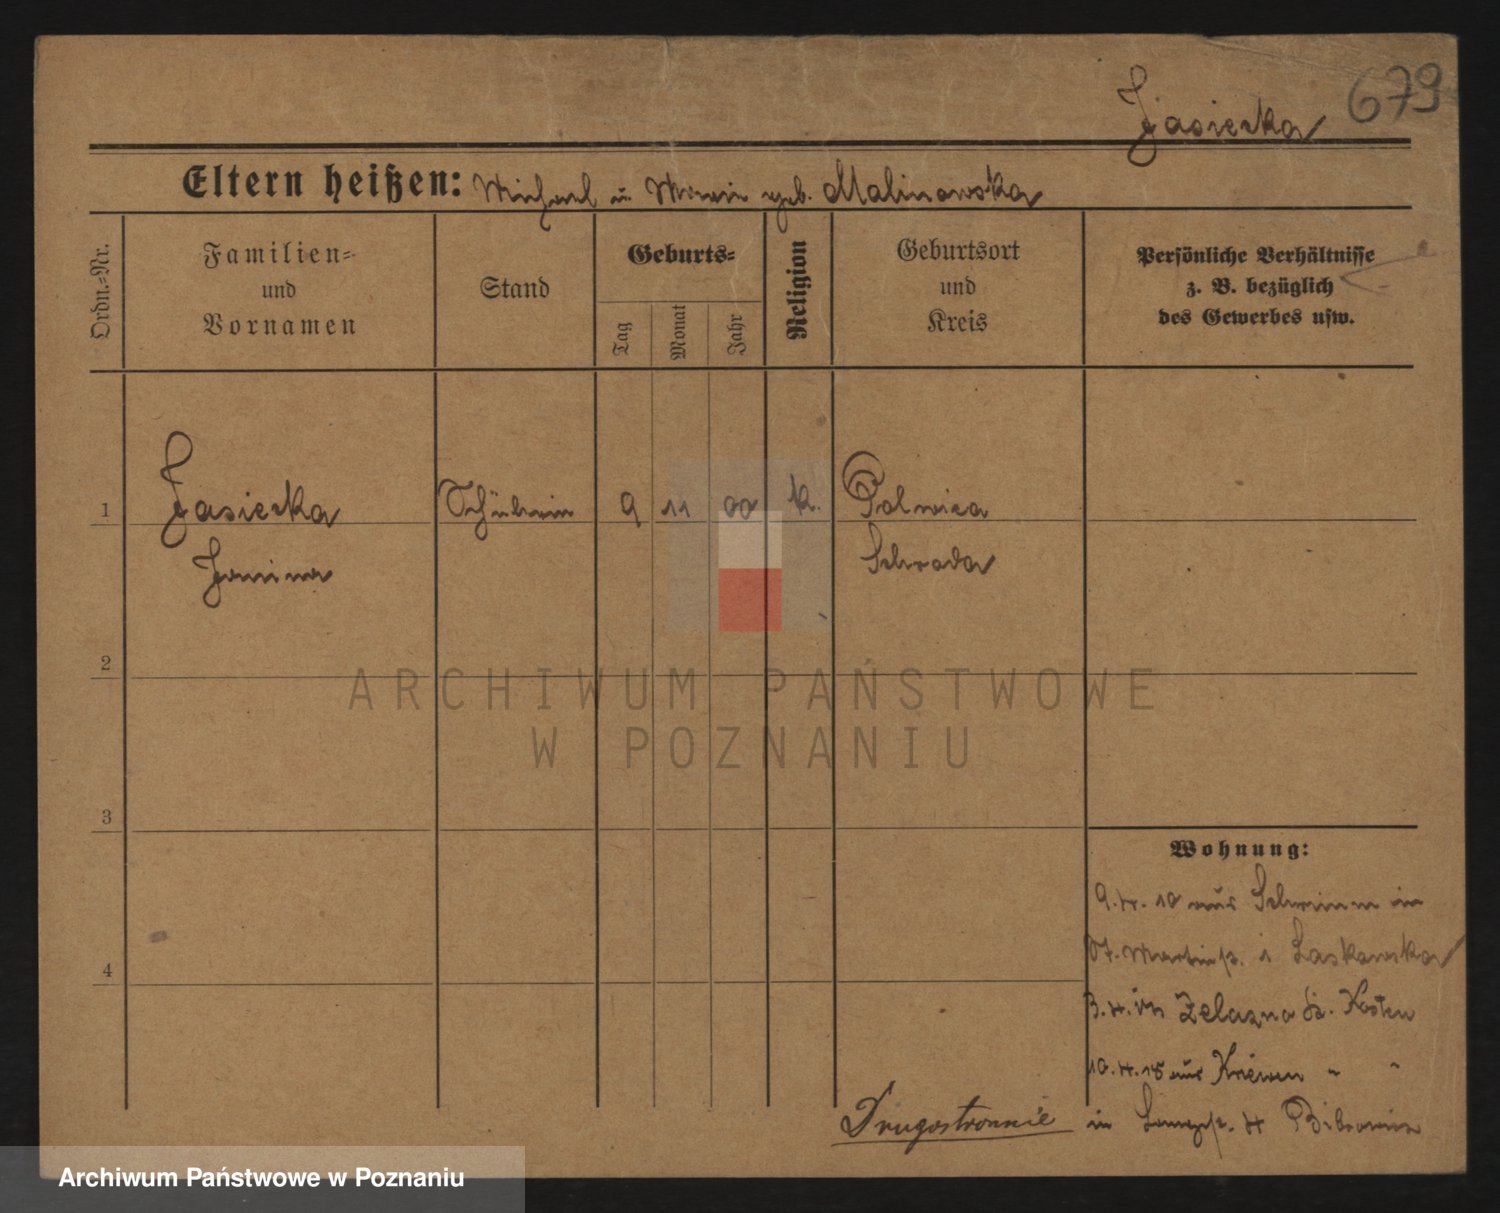 Jasiezka 679
Eltern heißen: Michael u. Maria geb. Malinowska
Ordn.-Nr.
Familien-
und
Vornamen
Stand
Geburts-
Tag
Monat
Jahr
Religion
Geburtsort
und
Kreis
Persönliche Verhältnisse
z. B. bezüglich
des Gewerbes usw.
1
Jasiezka
Janina
Schülerin
9
11
00
k.
Polwica
Schroda
2
3
4
Wohnung:
9.4.10 aus Schrimm in
St. Martinstr. Laskowska
3.4. in Zelazno Kr. Kosten
10.4.15 aus Kriewen " "
in 4
Drugostronnie
ARCHIWUM PAŃSTWOWE
W POZNANIU
Archiwum Państwowe w Poznaniu